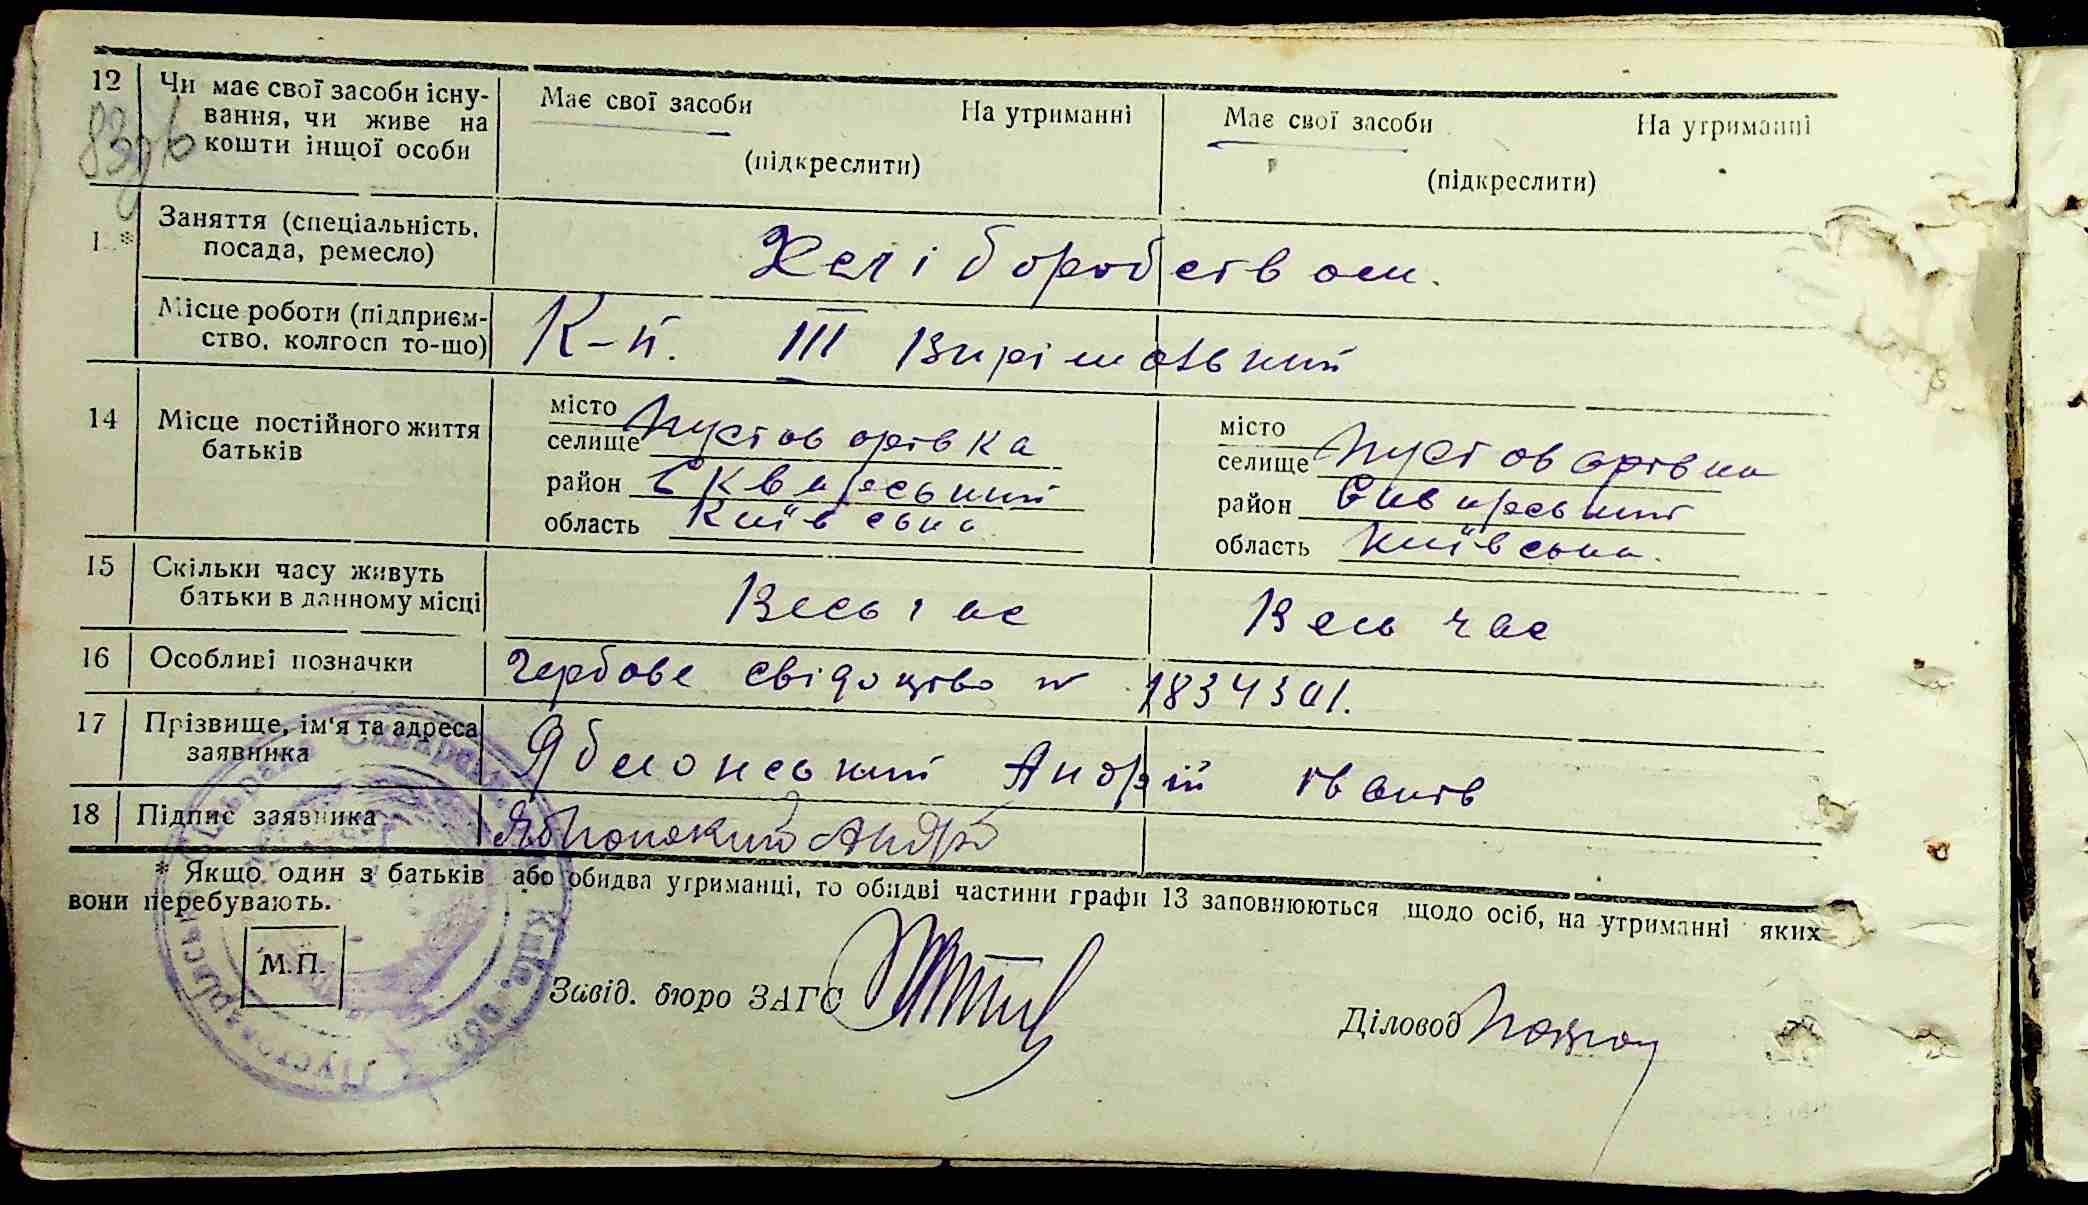 12 Чи має свої засоби існу- Має свої засоби На утриманні Має свої засоби На утриманні
вання, чи живе на
кошти іншої особи (підкреслити) (підкреслити)
Заняття (спеціальність,
посада, ремесло) Хеліборобством.
Місце роботи (підприєм-
ство, колгосп то-що) К-п. III Вирішальний
14 Місце постійного життя
батьків
місто
селище Пустоварівка
район Сквирський
область Київська
місто
селище Пустоварівка
район Сквирський
область Київська.
15 Скільки часу живуть
батьки в данному місці Весь час Весь час
16 Особливі позначки Гербове свідоцтво №
17 Прізвище, ім'я та адреса
заявника Яблонський Андрій Іванів
18 Підпис заявника Яблонский Андрій
* Якщо один з батьків або обидва утриманці, то обидві частини графи 13 заповнюються щодо осіб, на утриманні яких
вони перебувають.
М.П.
Завід. бюро ЗАГС
Діловод